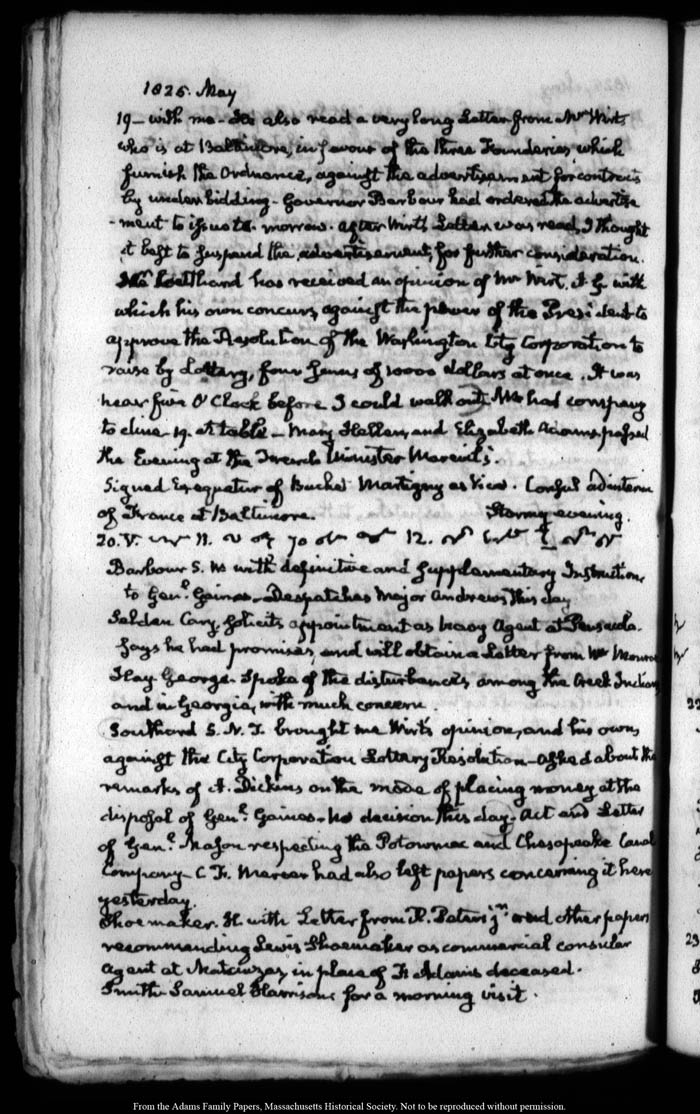 1825. May
19 — with me — He also read a very long Letter from Mr Wirt
who is at Baltimore, in favour of the three Founderies which
furnish the Ordnance, against the advertisement for contracts
by underbidding — Governor Barbour had ordered the advertise
-ment to issue to morrow. After Wirt's Letter was read, I thought
it best to suspend the advertisement, for further consideration.
Mr Southard has received an opinion of Mr Wirt, A. G. with
which his own concurs, against the power of the President to
approve the Resolution of the Washington City Corporation to
raise by Lottery, four sums of 10000 dollars at once. It was
near five O'Clock before I could walk out. We had company
to dine — 19. at table — Mary Hellen, and Elizabeth Adams passed
the Evening at the French Minister Mareuil's.
Signed Exequatur of Buchet Martigny as Vice. Consul ad interim
of France at Baltimore. Stormy evening.
20. V.
Barbour S. W with definitive and supplementary Instructions
to Genl. Gaines — Despatches Major Andrews this day.
Selden Cary. solicits appointment as Navy Agent at Pensacola.
Says he had promises, and will obtain a Letter from Mr Monroe
Hay George. Spoke of the disturbances among the Creek Indians
and in Georgia, with much concern.
Southard S. N. brought me Wirt's opinion, and his own,
against the City Corporation Lottery Resolution — Asked about the
remarks of A. Dickins on the mode of placing money at the
disposal of Genl. Gaines — No decision this day. Act and Letter
of Genl. Mason respecting the Potowmac and Chesapeake Canal
Company — C. F. Mercer had also left papers concerning it here
yesterday.
Shoemaker. H. with Letter from R. Peters jr. and other papers
recommending Lewis Shoemaker as commercial consular
Agent at Matanzas, in place of F. Adams deceased.
Smith Samuel Harrison for a morning visit.
From the Adams Family Papers, Massachusetts Historical Society. Not to be reproduced without permission.